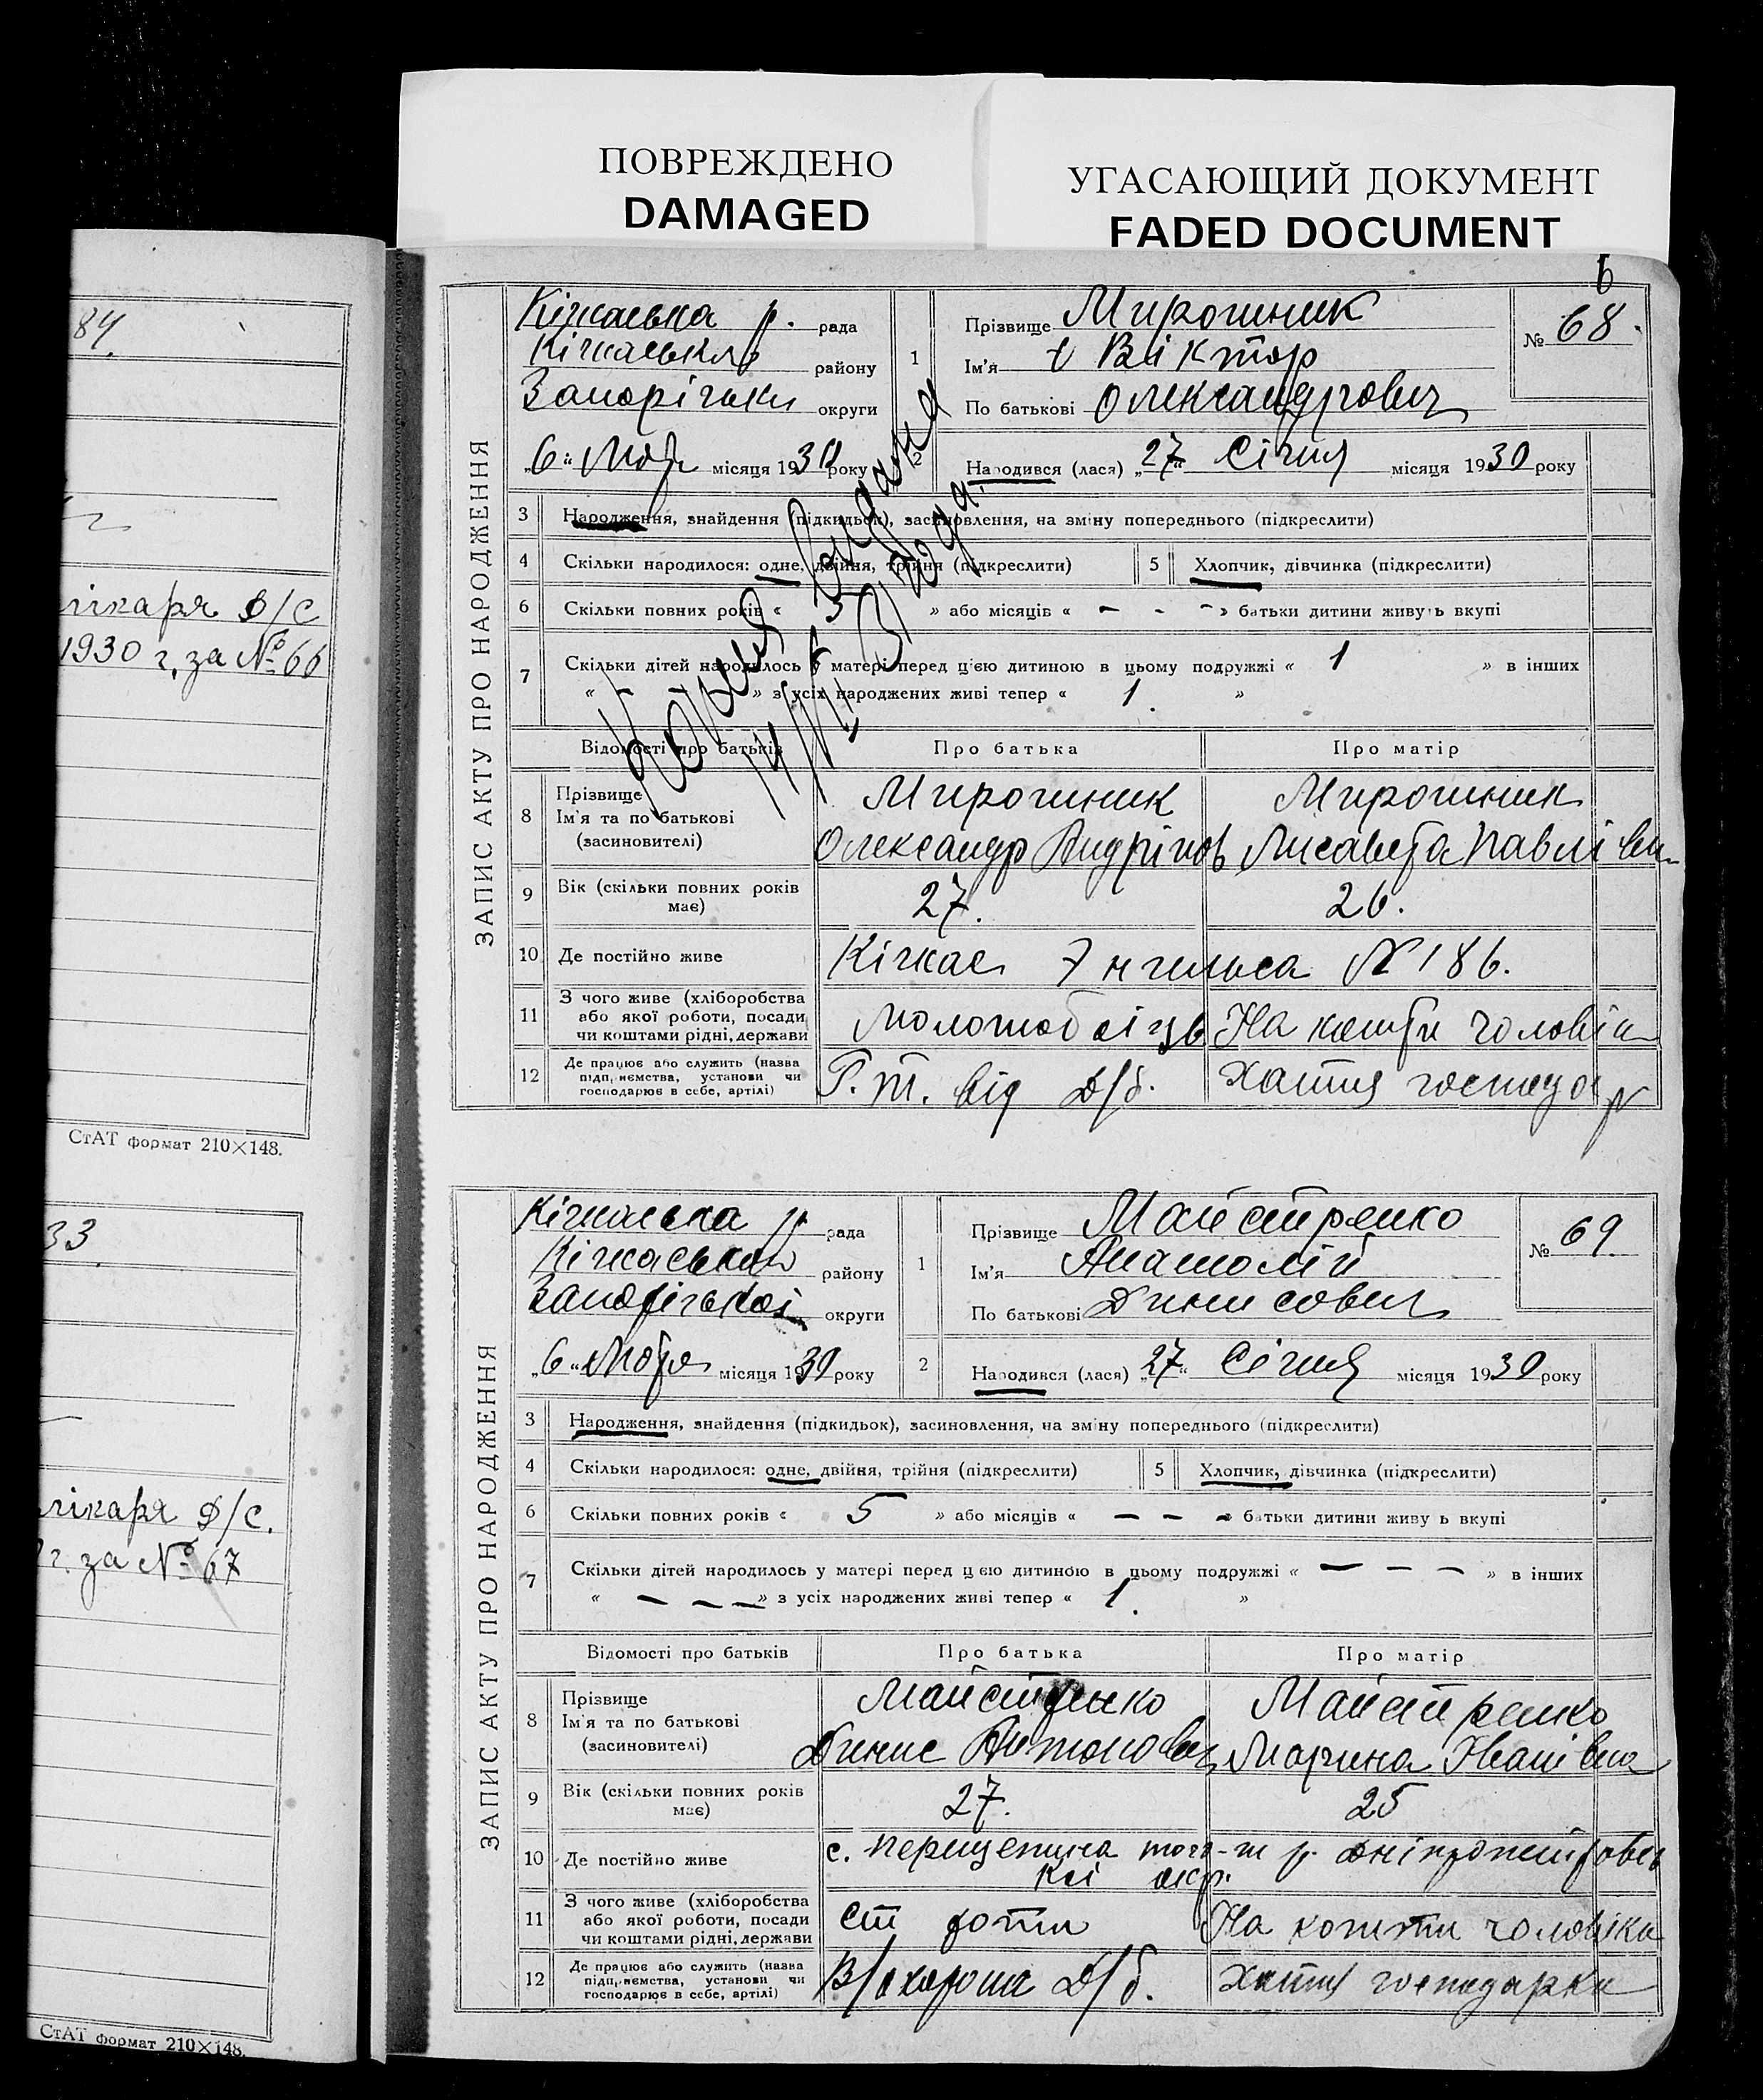 ПОВРЕЖДЕНО
DAMAGED
УГАСАЮЩИЙ ДОКУМЕНТ
FADED DOCUMENT
84.
лікаря Д/С
1930 г. за № 66
СтАТ формат 210×148.
33
лікаря Д/С.
г. за № 67
СтАТ формат 210×148.
6
ЗАПИС АКТУ ПРО НАРОДЖЕННЯ
Кічкаська р. рада
Кічкаського району
Запорізьки округи
„6“ Лют місяця 1930 року
1 Прізвище Мирошник
Ім'я Віктор
По батькові Олександрович
№ 68.
2 Народився (лася) „27“ Січня місяця 1930 року
3 Народження, знайдення (підкидьок), засиновлення, на зміну попереднього (підкреслити)
4 Скільки народилося: одне, двійня, трійня (підкреслити) 5 Хлопчик, дівчинка (підкреслити)
6 Скільки повних років « 3 » або місяців « – - - » батьки дитини живуть вкупі
7 Скільки дітей народилось у матері перед цією дитиною в цьому подружжі « 1 » в інших
« » з усіх народжених живі тепер « 1. »
Відомості про батьків Про батька Про матір
8 Прізвище Ім'я та по батькові (засиновителі)
Мирошник Мирошник
Олександр Андріїов Лисавета Павлівн
9 Вік (скільки повних років має) 27. 26.
10 Де постійно живе Кічкас Энгельса № 186.
11 З чого живе (хліборобства або якої роботи, посади чи коштами рідні, держави
Молотобоїць На кошти чоловік
12 Де працює або служить (назва підприємства, установи чи господарює в себе, артілі)
Р.т. від Д/б. Хатня господар
ЗАПИС АКТУ ПРО НАРОДЖЕННЯ
Кічкаська р. рада
Кічкаського району
Запорізької округи
„6“ Лют місяця 1930 року
1 Прізвище Майстренко
Ім'я Анатолій
По батькові Динисович
№ 69.
2 Народився (лася) „27“ Січня місяця 1930 року
3 Народження, знайдення (підкидьок), засиновлення, на зміну попереднього (підкреслити)
4 Скільки народилося: одне, двійня, трійня (підкреслити) 5 Хлопчик, дівчинка (підкреслити)
6 Скільки повних років « 5 » або місяців « – – - » батьки дитини живу ь вкупі
7 Скільки дітей народилось у матері перед цією дитиною в цьому подружжі « – – – » в інших
« – – – » з усіх народжених живі тепер « 1. »
Відомості про батьків Про батька Про матір
8 Прізвище Ім'я та по батькові (засиновителі)
Майстренко Майстренко
Динис Антонович Марина Іванівна
9 Вік (скільки повних років має) 27. 25
10 Де постійно живе с. Перещепина того-ж р. Дніпропетровсь
кої окр.
11 З чого живе (хліборобства або якої роботи, посади чи коштами рідні, держави
На кошти чоловіка
12 Де працює або служить (назва підприємства, установи чи господарює в себе, артілі)
В/охорони Д/б. Хатня господарка